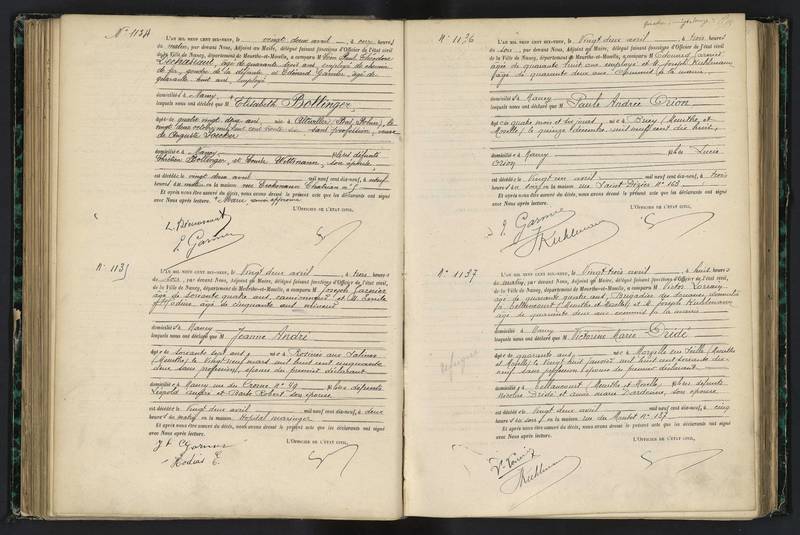 N° 1134
L'AN MIL NEUF CENT DIX-NEUF, le vingt deux avril, à onze heures
du matin, par devant Nous, Adjoint au Maire, délégué faisant fonctions d'Officier de l'état civil
de la Ville de Nancy, département de Meurthe-et-Moselle, a comparu M Paul Théodore
âgé de quarante sept ans, employé de chemin
de fer, gendre de la défunte et Edouard Garnier, âgé de
quarante huit ans, employé
domiciliés à Nancy
lesquels nous ont déclaré que Mme Elisabeth Bollinger
âgée de quatre vingt deux ans, née à Altwiller (Bas-Rhin), le
vingt deux octobre mil huit cent trente six sans profession, veuve
de Auguste
domiciliée à Nancy fille des défunts
Chrétien Bollinger, et Wittmann, son épouse
est décédée le vingt deux avril mil neuf cent dix-neuf, à neuf
heures du matin en la maison rue n° 5
Et après nous être assuré du décès, nous avons dressé le présent acte que les déclarants ont signé
avec Nous après lecture.
L'OFFICIER DE L'ÉTAT CIVIL,
E. Garnier
N° 1135
L'AN MIL NEUF CENT DIX-NEUF, le vingt deux avril, à trois heures
du soir, par devant Nous, Adjoint au Maire, délégué faisant fonctions d'Officier de l'état civil
de la Ville de Nancy, département de Meurthe-et-Moselle, a comparu M Joseph Garnier
âgé de soixante quatre ans, camionneur et M. Emile
Hodias âgé de cinquante ans
domiciliés à Nancy
lesquels nous ont déclaré que M Jeanne André
âgée de soixante sept ans, née à Rosières aux Salines
(Meurthe), le vingt neuf mars mil huit cent cinquante
deux sans profession, épouse du premier déclarant
domiciliée à Nancy rue du Crosne n° 49 fille des défunts
Léopold André et Robert son épouse
est décédée le vingt deux avril mil neuf cent dix-neuf, à deux
heures du matin en la maison Hôpital Maringer
Et après nous être assuré du décès, nous avons dressé le présent acte que les déclarants ont signé
avec Nous après lecture.
L'OFFICIER DE L'ÉTAT CIVIL,
Garnier
Hodias E.
N° 1136
L'AN MIL NEUF CENT DIX-NEUF, le vingt deux avril, à trois heures
du soir, par devant Nous, Adjoint au Maire, délégué faisant fonctions d'Officier de l'état civil
de la Ville de Nancy, département de Meurthe-et-Moselle, a comparu M Edouard Garnier
âgé de quarante huit ans, employé et M. Joseph Kuhlmann
âgé de quarante deux ans commis à la mairie
domiciliés à Nancy
lesquels nous ont déclaré que Paule Andrée Orion
âgée de quatre mois et six jours, née à Briey (Meurthe et
Moselle) le quinze décembre mil neuf cent dix huit,
domiciliée à Nancy fille de Lucie
Orion
est décédée le vingt un avril mil neuf cent dix-neuf, à trois
heures du soir en la maison rue Saint Dizier n° 162
Et après nous être assuré du décès, nous avons dressé le présent acte que les déclarants ont signé
avec Nous après lecture.
L'OFFICIER DE L'ÉTAT CIVIL,
E. Garnier
J Kuhlmann
N° 1137
L'AN MIL NEUF CENT DIX-NEUF, le vingt trois avril, à huit heures
du matin, par devant Nous, Adjoint au Maire, délégué faisant fonctions d'Officier de l'état civil
de la Ville de Nancy, département de Meurthe-et-Moselle, a comparu M Victor
âgé de quarante quatre ans, Brigadier des douanes, domicilié
à Bettancourt (Meurthe et Moselle) et M. Joseph Kuhlmann
âgé de quarante deux ans commis à la mairie
domicilié à Nancy
lesquels nous ont déclaré que Victorine Marie Dridé
âgée de quarante ans, née à (Meurthe
et Moselle) le vingt huit janvier mil huit cent soixante dix
neuf sans profession épouse du premier déclarant
Refugiée
domiciliée à Bettancourt (Meurthe et Moselle) fille des défunts
Nicolas Dridé et son épouse
est décédée le vingt deux avril mil neuf cent dix-neuf, à cinq
heures du soir en la maison rue n° 137
Et après nous être assuré du décès, nous avons dressé le présent acte que les déclarants ont signé
avec Nous après lecture.
L'OFFICIER DE L'ÉTAT CIVIL,
Kuhlmann